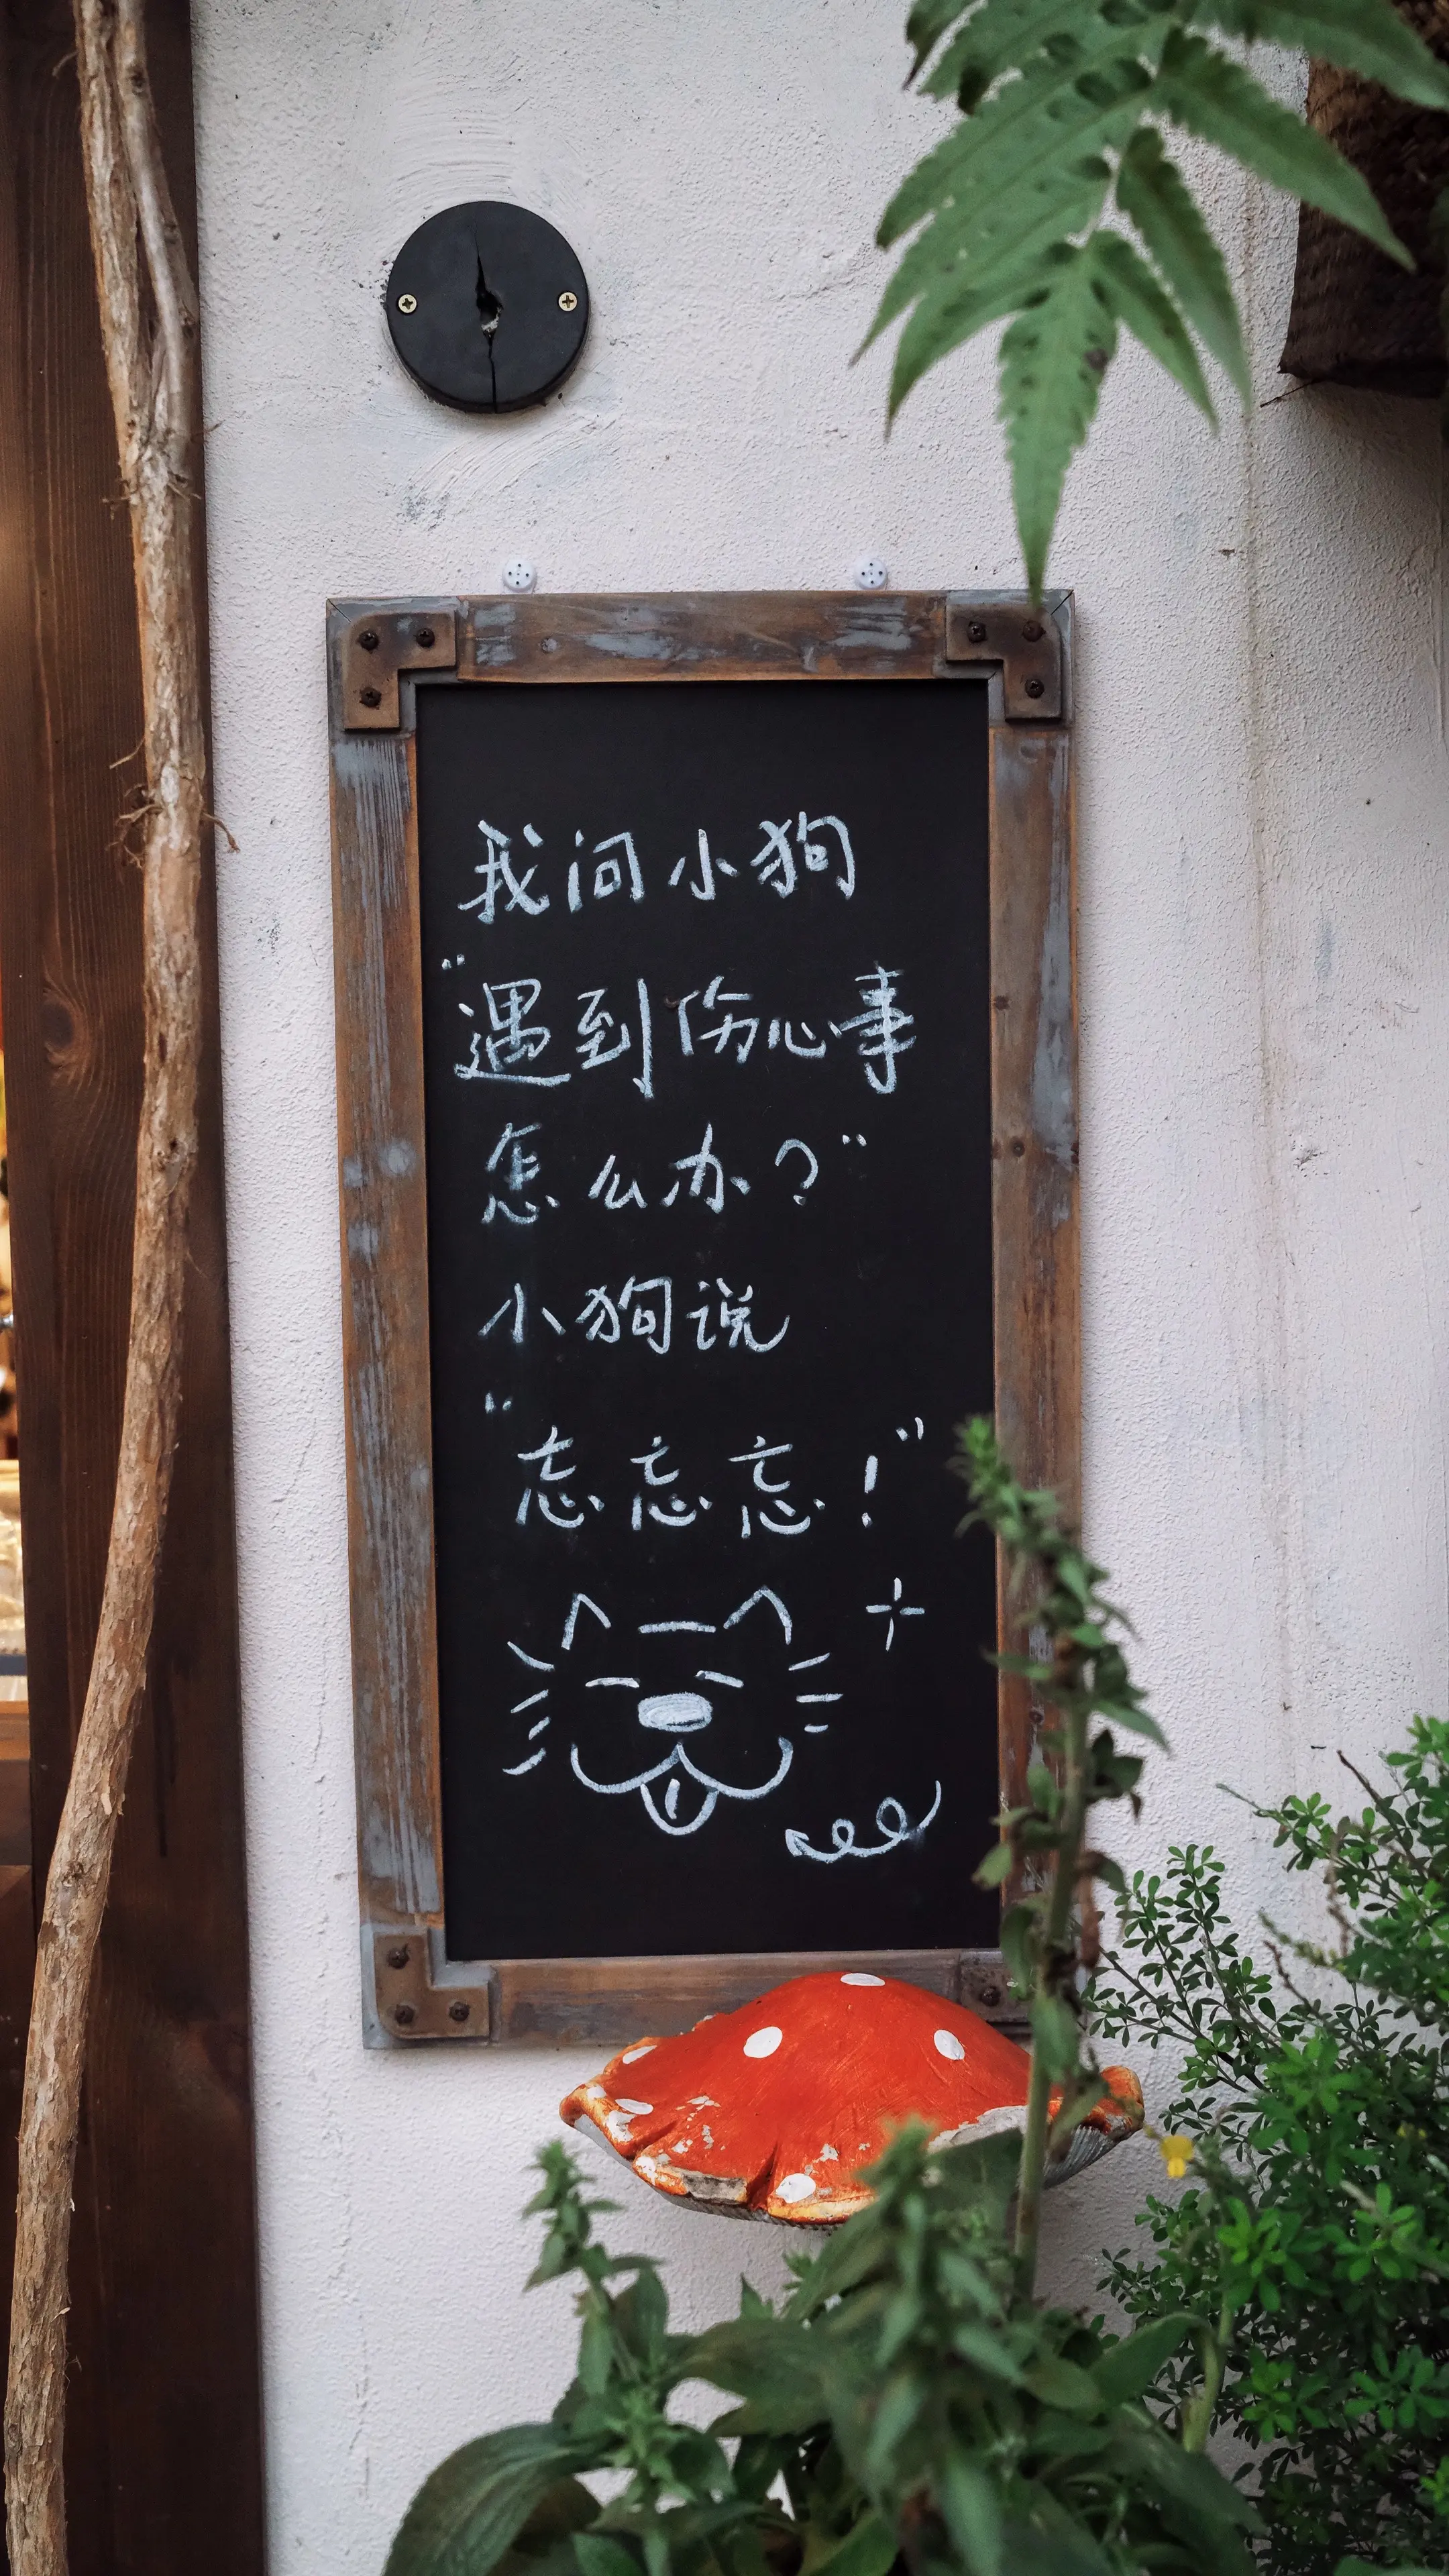 我问小狗
“遇到伤心事
怎么办？”
小狗说
“忘忘忘！”